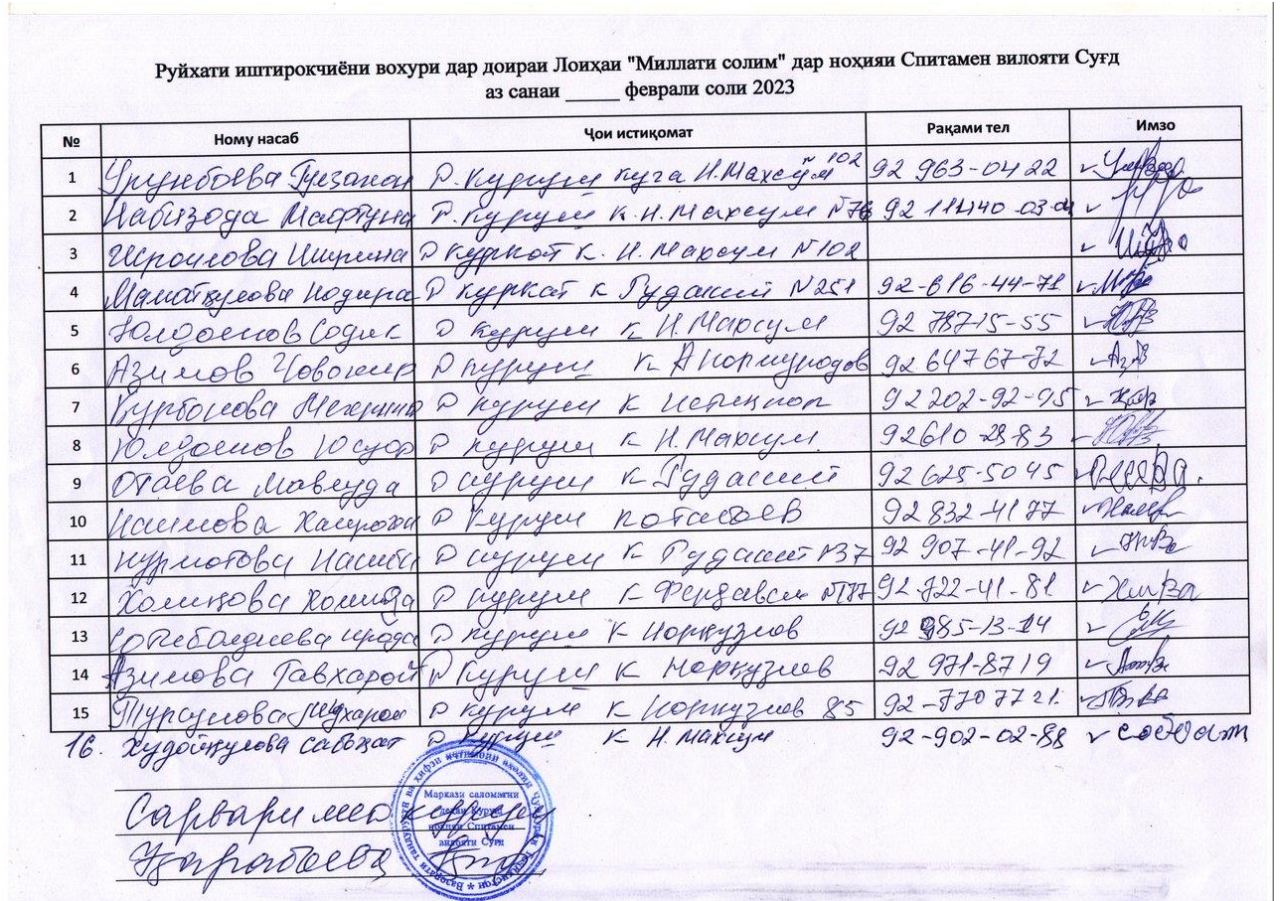 Руйхати иштирокчиёни вохури дар доираи Лоиҳаи "Миллати солим" дар ноҳияи Спитамен вилояти Суғд
аз санаи ______ феврали соли 2023
№ Ному насаб Ҷои истиқомат Рақами тел Имзо
1 Урунбоева Гулзахон Д. Куруш куча Н. Махсум 102 92 963-04 22
2 Набизода Мафтуна Д. Куруш к. Н. Махсум №76
3 Исроилова Ширина Д Куркат к. Н. Махсум №102
4 Маматкулова Нодира Д Куркат к Рудакий №251 92-616-44-71
5 Юлдошов Содик Д Куруш к Н. Махсум 92 787-15-55
6 Азимов Човохир Д Куруш к А Нормуродов 92 64767-72
7 Курбонова Мехрин Д Куруш к Истиклол 92 202-92-95
8 Юлдошов Юсуф Д Куруш к Н. Махсум 92610-28-83
9 Отаева Мавлуда Д Куруш к Рудакий 92 625-50 45
10 Д Куруш 92 832-41 77
11 Нурматова Насиба Д Куруш к Рудакий №37 92 907-41-92
12 Холикова Холида Д Куруш к Фердавси №187 92-722-41-81
13 Д Куруш к Норкузиев
14 Азимова Гавхарой Д Куруш к Норкузиев 92 971-87 19
15 Турсунова Д Куруш к Норкузиев 85 92-770 77 21
16. Худойкулова Сабохат Д Куруш к Н. Махсум 92-902-02-88 Сабохат
Маркази саломатии
деҳаи Куруш
ноҳияи Спитамен
вилояти Суғд
Сарвари мс Куруш
Қарабаева